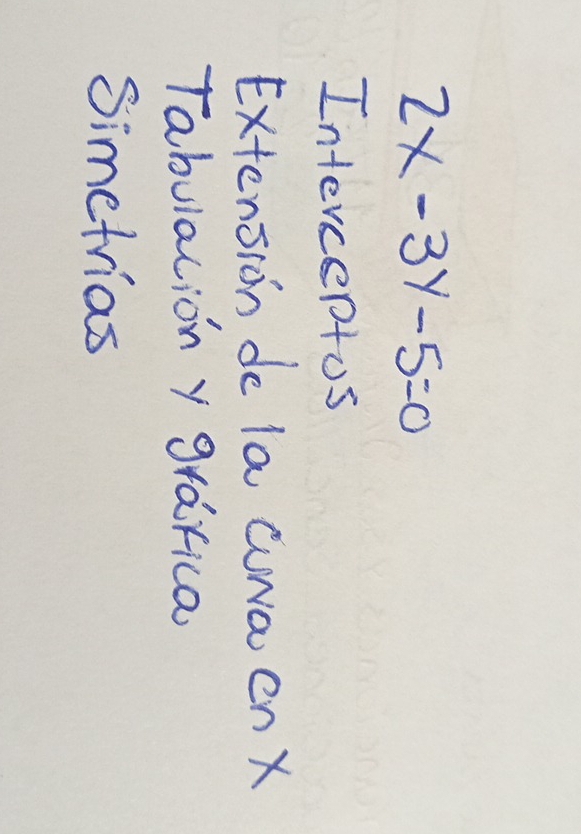 2x - 3y - 5 = 0
Interceptos
Extensión de la curva en x
Tabulación y gráfica
Simetrías